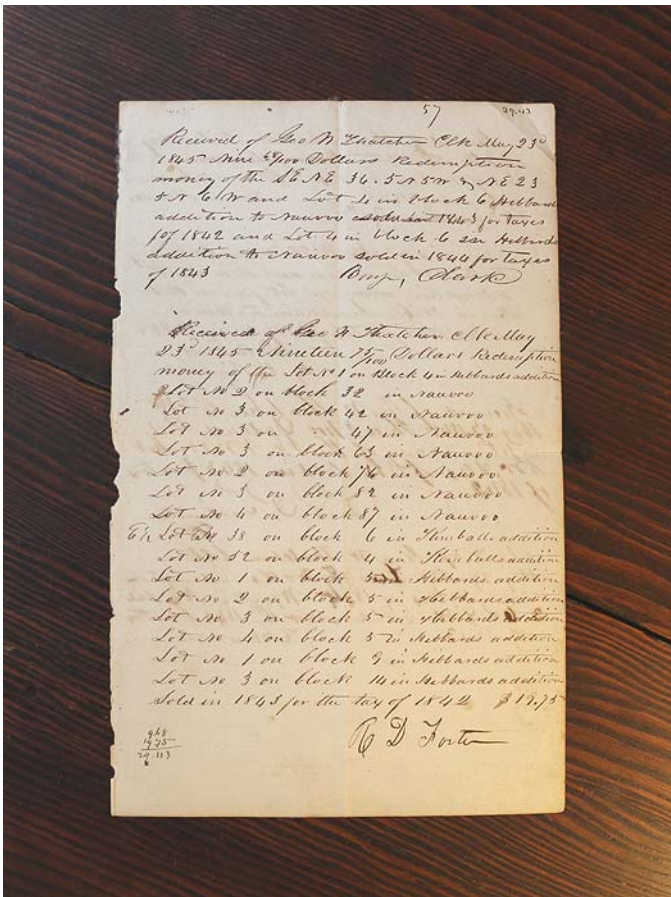 57
29.43
Received of Geo W Thatcher Clk May 23d
1845 Nine 68/100 Dollars Redemption
money of the SE NE 36. 5 N 5 W & NE 23
5 N 6 W and Lot 4 in block 6 Hibbard
addition to Nauvoo sold in 1843 for taxes
of 1842 and Lot 4 in block 6 Hibbards
addition to Nauvoo sold in 1844 for taxes
of 1843 Benj, Clark
Received of Geo W Thatcher Clk May
23d 1845 Nineteen 75/100 Dollars Redemption
money of the Lot No 1 on Block 4 in Hibbards addition
Lot No 2 on block 32 in Nauvoo
Lot No 3 on block 42 in Nauvoo
Lot No 3 on 47 in Nauvoo
Lot No 3 on block 63 in Nauvoo
Lot No 2 on block 76 in Nauvoo
Lot No 3 on block 82 in Nauvoo
Lot No 4 on block 87 in Nauvoo
E ½ Lot No 38 on block 6 in Kimballs addition
Lot No 52 on block 4 in Kimballs addition
Lot No 1 on block 5 Hibbards addition
Lot No 2 on block 5 in Hibbards addition
Lot No 3 on block 5 in Hibbards addition
Lot No 4 on block 5 in Hibbards addition
Lot No 1 on block 9 in Hibbards addition
Lot No 3 on block 14 in Hibbards addition
Sold in 1843 for the tax of 1842 $19.75
R D Foster
9.68
19.75
29.43